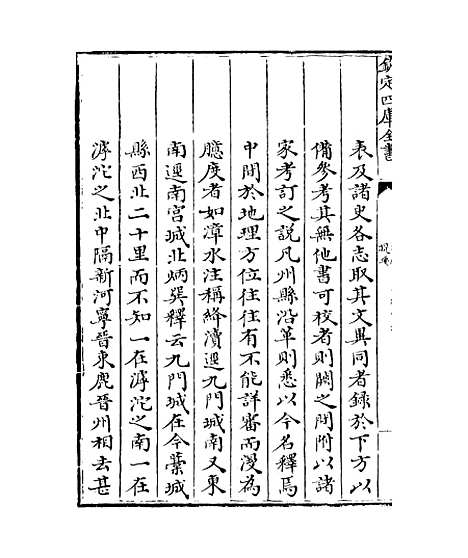 欽定四庫全書
表及諸史各志取其文異同者録於下方以
備參考其無他書可校者則闕之閒附以諸
家考訂之説凡州縣沿革則悉以今名釋焉
中間於地理方位往往有不能詳審而漫為
臆度者如漳水注稱絳瀆逕九門城南又東
南逕南宮城北炳巽釋云九門城在今藁城
縣西北二十里而不知一在滹沱之南一在
滹沱之北中隔新河寧晉束鹿晉州相去甚